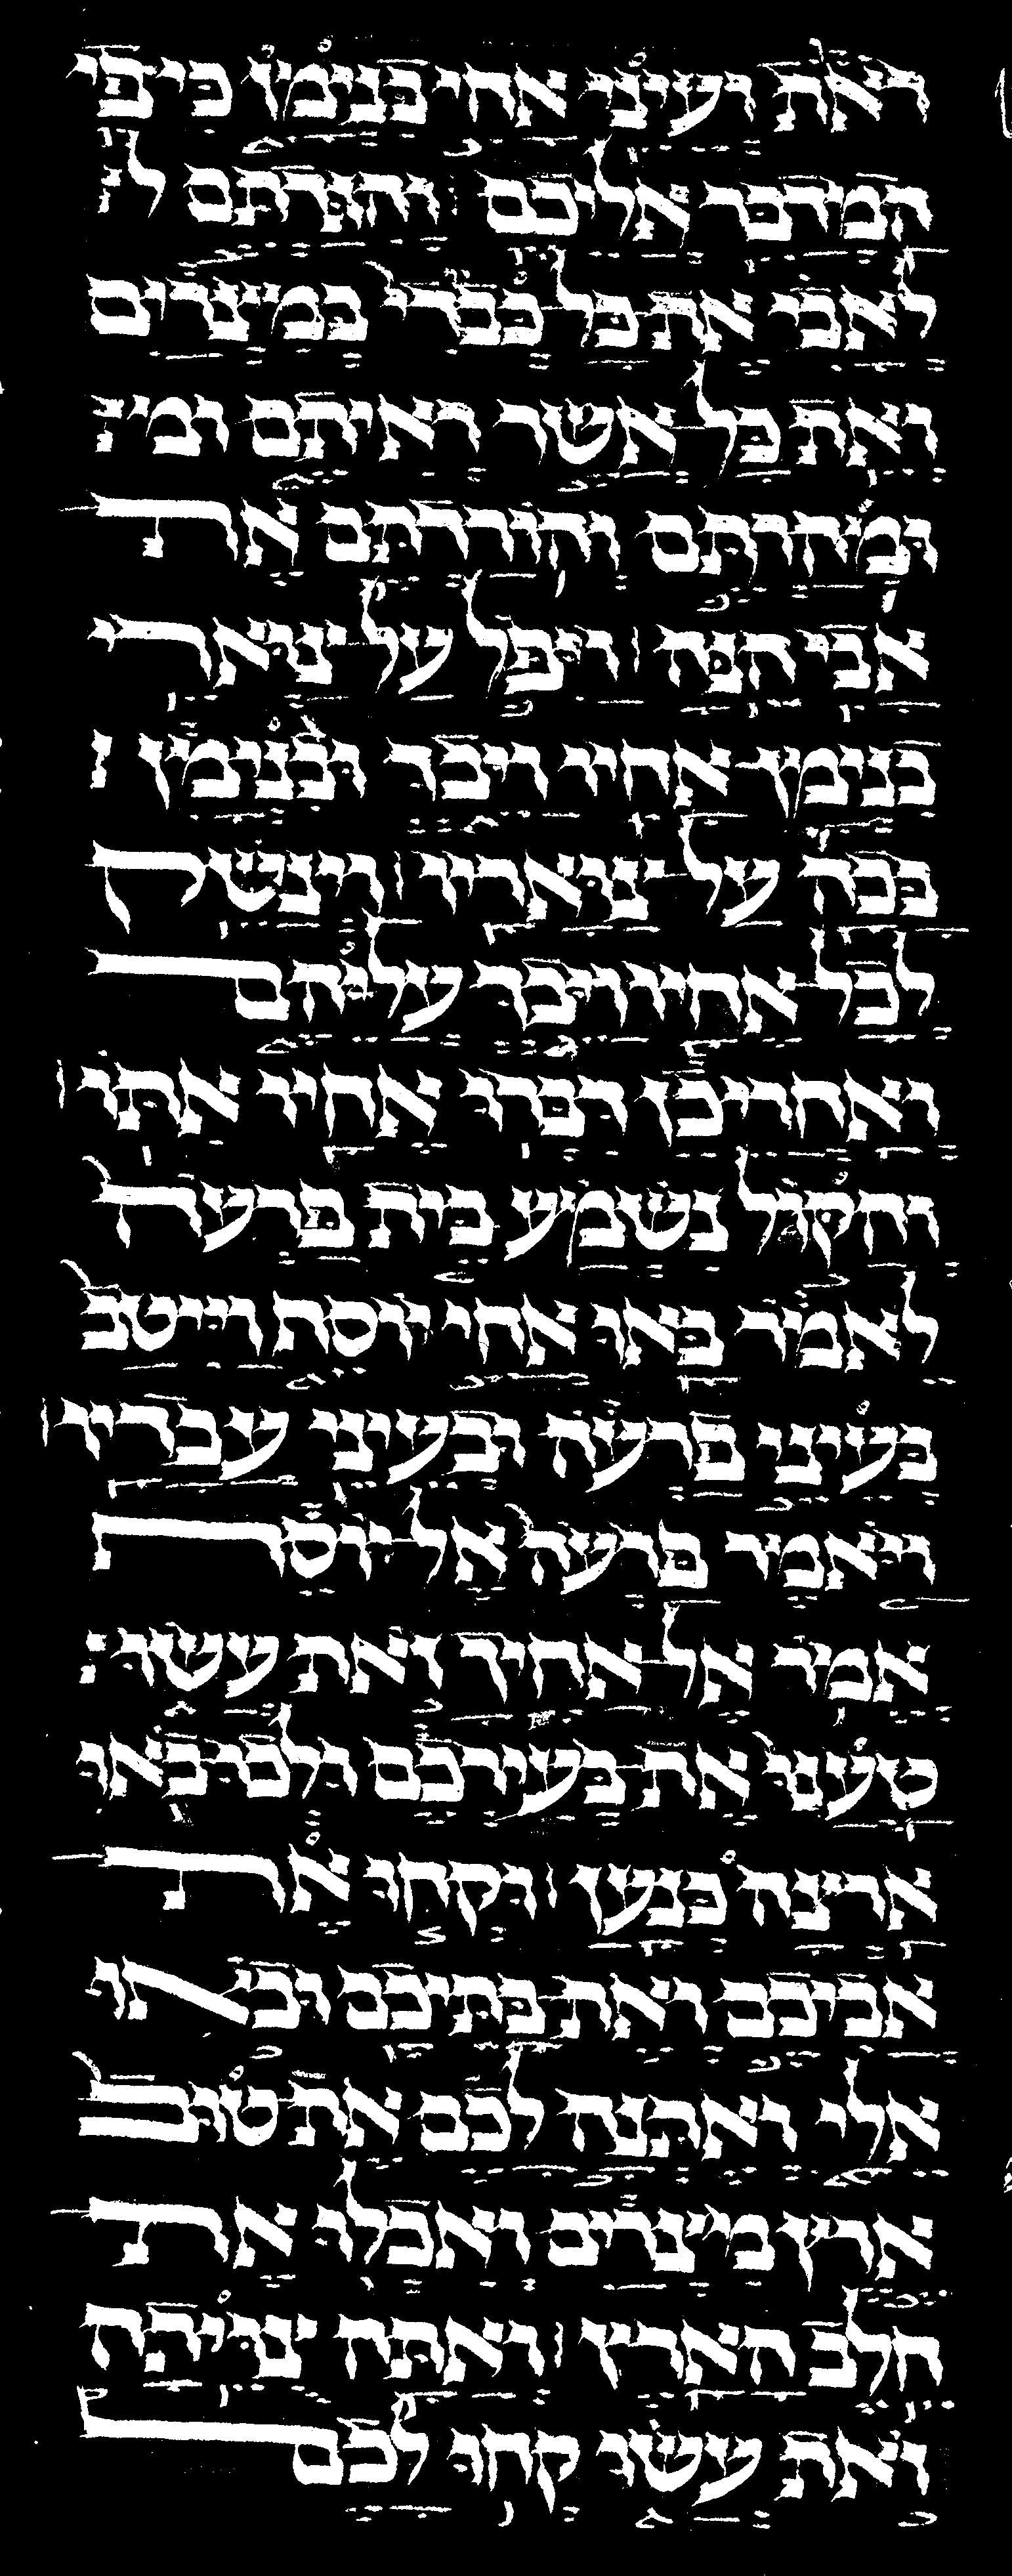 ראת ועיני אחי בנימן כי פי
המדבר אליכם והגדתם ל
לאבי את כל כבדי במצרים
ואת כל אשר ראיתם ומ
ומהרתם והורדתם את
אבי הנה ויפל על צוארי
בנימן אחיו ויבך ובנימן
בכה על צואריו וינשק
לכל אחיו ויבך עליהם
ואחרי כן דברו אחיו אתו
והקול נשמע בית פרעה
לאמר באו אחי יוסף וייטב
בעיני פרעה ובעיני עבדיו
ויאמר פרעה אל יוסף
אמר אל אחיך זאת עשו
טענו את בעירכם ולכו באו
ארצה כנען וקחו את
אביכם ואת בתיכם ובאו
אלי ואתנה לכם את טוב
ארץ מצרים ואכלו את
חלב הארץ ואתה צויתה
זאת עשו קחו לכם